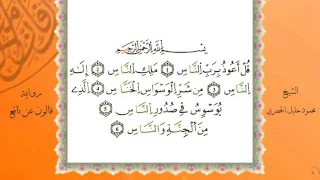 بِسْمِ اللَّهِ الرَّحْمَٰنِ الرَّحِيمِ
قُلْ أَعُوذُ بِرَبِّ النَّاسِ ١ مَلِكِ النَّاسِ ٢ إِلَٰهِ
النَّاسِ ٣ مِن شَرِّ الْوَسْوَاسِ الْخَنَّاسِ ٤ الَّذِي
يُوَسْوِسُ فِي صُدُورِ النَّاسِ ٥
مِنَ الْجِنَّةِ وَالنَّاسِ ٦
الشيخ
محمود خليل الحصري
رواية
قالون عن نافع